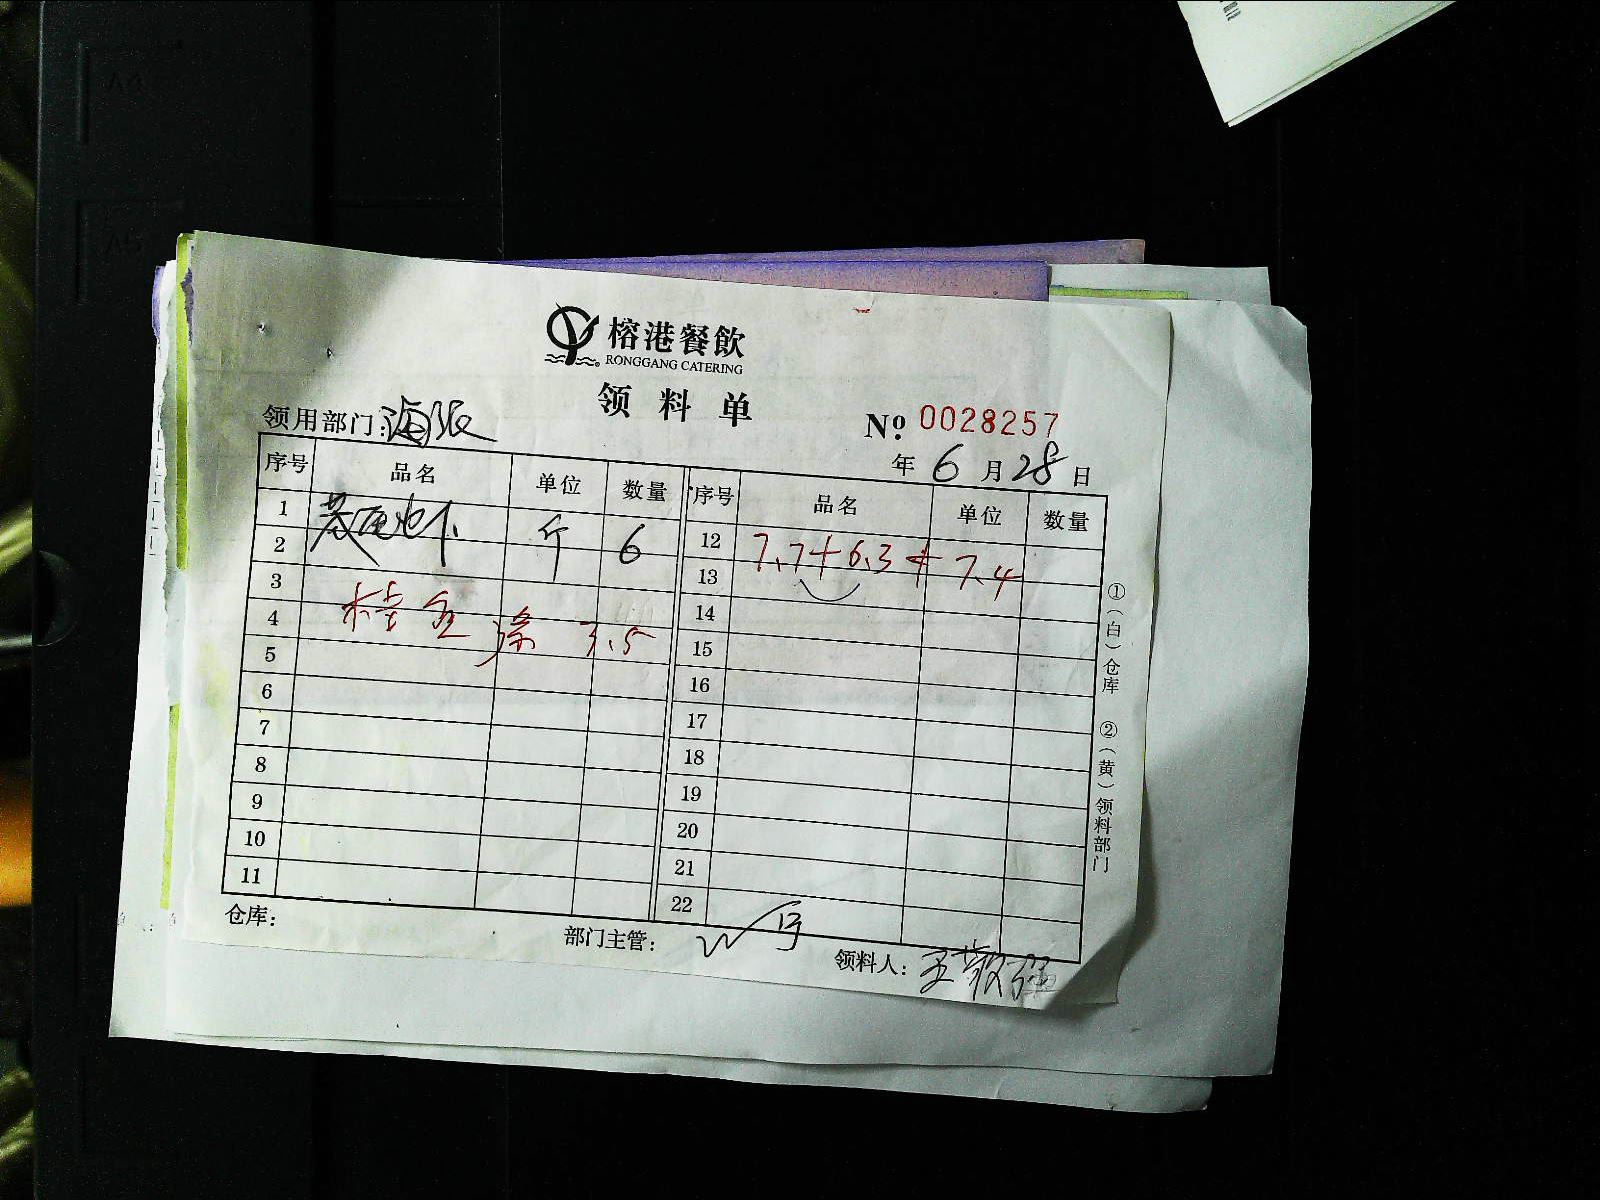 榕港餐飲
RONGGANG CATERING
领料单
领用部门: 海派
№ 0028257
年 6 月 28 日
序号 品名 单位 数量 序号 品名 单位 数量
1 斤 6 12 7.7+6.3+7.4
2 13
3 14
4 桂 3.5 15
5 16
6 17
7 18
8 19
9 20
10 21
11 22
仓库: 部门主管: 领料人: 王
①(白)仓库 ②(黄)领料部门